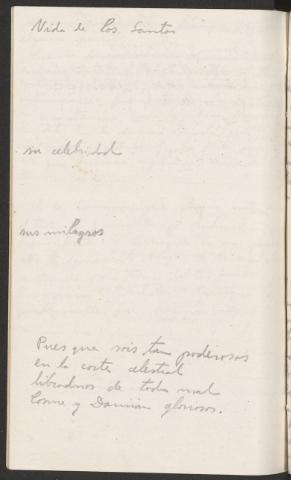 Vida de los Santos
su celebridad
sus milagros
Pues que sois tan poderosos
en la corte celestial
libradnos de todo mal
Cosme y Damian gloriosos.